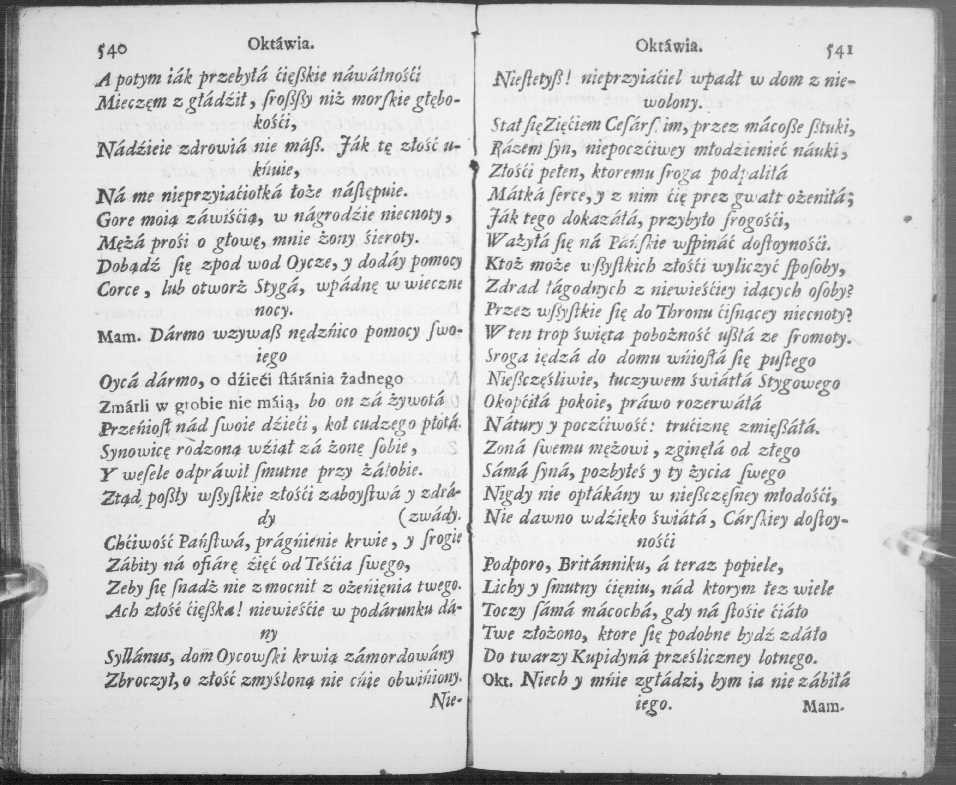 540
Oktáwia.
A potym iák przebyłá ćięßkie náwáłnośći
Mieczęm z głádźił, ſroßſſy niż morſkie głębo-
kośći,
Nádźieie zdrowiá nie máß. Ják tę złość u-
kńuie,
Ná me nieprzyiaćiołká łoże náſtępuie.
Gore moią záwiśćią, w nágrodźie niecnoty,
Mężá prośi o głowę, mnie żony śieroty.
Dobądź ſię zpod wod Oycze, y dodáy pomocy
Corce, lub otworż Stygá, wpádnę w wieczne
nocy.
Mam. Dármo wzywaß nędzńico pomocy ſwo-
iego
Oycá dármo, o dźieći ſtáránia żadnego
Zmárli w grobie nie máią, bo on zá żywotá
Przeńioſł nád ſwoie dźieći, koł cudzego płotá.
Synowicę rodzoną wźiął zá żonę ſobie,
Y weſele odpráwił ſmutne przy żáłobie.
Ztąd poßły wſſyſtkie złośći zaboyſtwá y zdrá-
dy (zwády.
Chćiwość Páńſtwá, prágńienie krwie, y ſrogie
Zábity ná ofiárę źięć od Teśćia ſwego,
Zeby ſię ſnadż nie zmocnił z ożeńięnia twego.
Ach złość ćięßka! niewieśćie w podárunku dá-
ny
Syllánus, dom Oycowſki krwią zámordowány
Zbroczył, o złość zmyśloną nie cúie obwińiony.
Nie-
Oktáwia.
541
Nieſtetyß! nieprzyiaćiel wpadł w dom z nie-
wolony.
Stał ſię Zięćiem Ceſárſ im, przez mácoße ſztuki,
Rázem ſyn, niepoczćiwey młodzienieć náuki,
Złośći pełen, ktoremu ſroga podpaliłá
Mátká ſerce, y z nim ćię prez gwałt ożeniłá;
Ják tego dokazáłá, przybyło ſrogośći,
Ważyłá ſię ná Páńſkie wſpináć doſtoynośći.
Ktoż może wſſyſtkich złośći wyliczyć ſpoſoby,
Zdrad łágodnych z niewieśćiey idących oſoby?
Przez wſſyſtkie ſię do Thronu ćiſnącey niecnoty?
W ten trop święta pobożność ußłá ze ſromoty.
Sroga iędzá do domu wńioſłá ſię puſtego
Nießczęśliwie, łuczywem świátłá Stygowego
Okopćiłá pokoie, práwo rozerwáłá
Nátury y poczćiwość: trućiznę zmięßáłá.
Zoná ſwemu mężowi, zginęłá od złego
Sámá ſyná, pozbyłeś y ty życia ſwego
Nigdy nie opłákány w nießczęſney młodośći,
Nie dawno wdźięko świátá, Cárſkiey doſtoy-
nośći
Podporo, Británniku, á teraz popiele,
Lichy y ſmutny ćięniu, nád ktorym łez wiele
Toczy ſámá mácochá, gdy ná ſtośie ćiáło
Twe złożono, ktore ſię podobne bydź zdáło
Do twarzy Kupidyná prześliczney lotnego.
Okt. Niech y mńie zgłádzi, bym ia nie zábiłá
iego.
Mam-